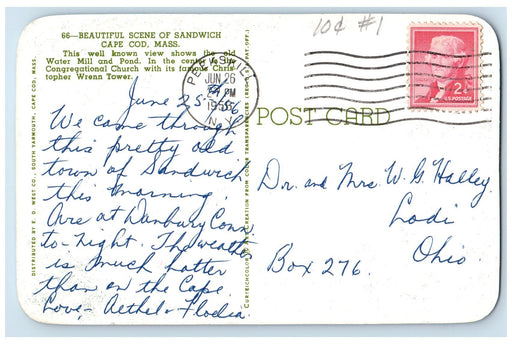 66—BEAUTIFUL SCENE OF SANDWICH
CAPE COD, MASS.
This well known view shows the old
Water Mill and Pond. In the center is the
Congregational Church with its famous Chris-
topher Wrenn Tower.
June 25
We came through
this pretty old
town of Sandwich
this morning.
Are at Danbury Conn.
to-night. The weather
is much hotter
than on the Cape.
Love - Aethel &
DISTRIBUTED BY E. D. WEST CO., SOUTH YARMOUTH, CAPE COD, MASS.
10¢ #1
JUN 26
PM
N.Y.
2¢
U.S. POSTAGE
POST CARD
Dr. and Mrs. W. G. Halley
Lodi
Ohio.
Box 276.